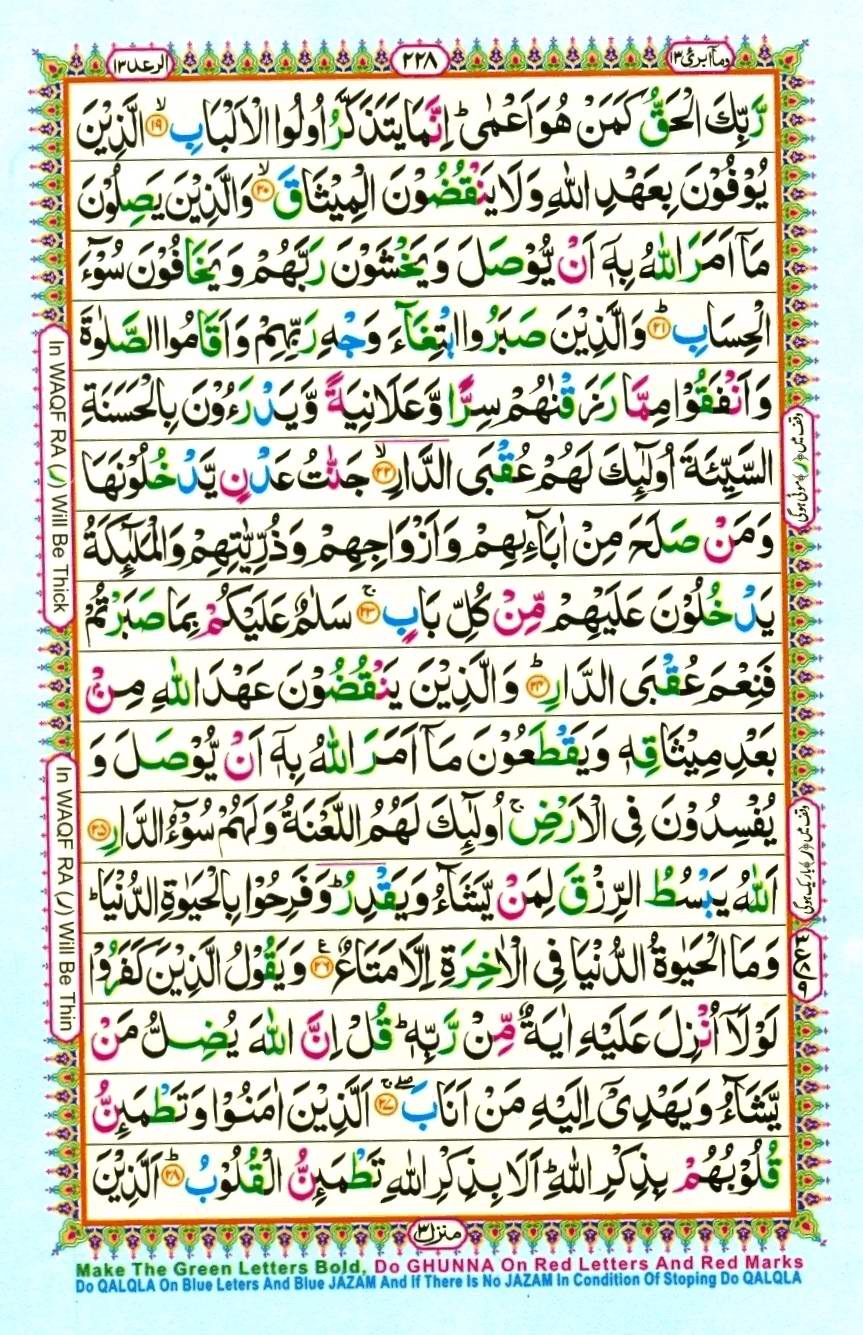 الرعد ١٣
٢٢٨
وما ابرئ ١٣
رَّبِّكَ الْحَقُّ كَمَنْ هُوَ اَعْمٰى ؕ اِنَّمَا يَتَذَكَّرُ اُولُوا الْاَلْبَابِ ۙ﴿۱۹﴾ الَّذِيْنَ
يُوْفُوْنَ بِعَهْدِ اللّٰهِ وَلَا يَنْقُضُوْنَ الْمِيْثَاقَ ۙ﴿۲۰﴾ وَالَّذِيْنَ يَصِلُوْنَ
مَاۤ اَمَرَ اللّٰهُ بِهٖۤ اَنْ يُّوْصَلَ وَيَخْشَوْنَ رَبَّهُمْ وَيَخَافُوْنَ سُوْٓءَ
الْحِسَابِ ؕ﴿۲۱﴾ وَالَّذِيْنَ صَبَرُوا ابْتِغَآءَ وَجْهِ رَبِّهِمْ وَاَقَامُوا الصَّلٰوةَ
وَاَنْفَقُوْا مِمَّا رَزَقْنٰهُمْ سِرًّا وَّعَلَانِيَةً وَّيَدْرَءُوْنَ بِالْحَسَنَةِ
السَّيِّئَةَ اُولٰٓئِكَ لَهُمْ عُقْبَى الدَّارِ ۙ﴿۲۲﴾ جَنّٰتُ عَدْنٍ يَّدْخُلُوْنَهَا
وَمَنْ صَلَحَ مِنْ اٰبَآئِهِمْ وَاَزْوَاجِهِمْ وَذُرِّيّٰتِهِمْ وَالْمَلٰٓئِكَةُ
يَدْخُلُوْنَ عَلَيْهِمْ مِّنْ كُلِّ بَابٍ ۚ﴿۲۳﴾ سَلٰمٌ عَلَيْكُمْ بِمَا صَبَرْتُمْ
فَنِعْمَ عُقْبَى الدَّارِ ؕ﴿۲۴﴾ وَالَّذِيْنَ يَنْقُضُوْنَ عَهْدَ اللّٰهِ مِنْۢ
بَعْدِ مِيْثَاقِهٖ وَيَقْطَعُوْنَ مَاۤ اَمَرَ اللّٰهُ بِهٖۤ اَنْ يُّوْصَلَ وَ
يُفْسِدُوْنَ فِى الْاَرْضِ ۙ اُولٰٓئِكَ لَهُمُ اللَّعْنَةُ وَلَهُمْ سُوْٓءُ الدَّارِ ﴿۲۵﴾
اَللّٰهُ يَبْسُطُ الرِّزْقَ لِمَنْ يَّشَآءُ وَيَقْدِرُ ؕ وَفَرِحُوْا بِالْحَيٰوةِ الدُّنْيَا ؕ
وَمَا الْحَيٰوةُ الدُّنْيَا فِى الْاٰخِرَةِ اِلَّا مَتَاعٌ ﴿۲۶﴾ وَيَقُوْلُ الَّذِيْنَ كَفَرُوْا
لَوْلَاۤ اُنْزِلَ عَلَيْهِ اٰيَةٌ مِّنْ رَّبِّهٖ ؕ قُلْ اِنَّ اللّٰهَ يُضِلُّ مَنْ
يَّشَآءُ وَيَهْدِىْۤ اِلَيْهِ مَنْ اَنَابَ ۖۚ﴿۲۷﴾ اَلَّذِيْنَ اٰمَنُوْا وَتَطْمَئِنُّ
قُلُوْبُهُمْ بِذِكْرِ اللّٰهِ ؕ اَلَا بِذِكْرِ اللّٰهِ تَطْمَئِنُّ الْقُلُوْبُ ؕ﴿۲۸﴾ اَلَّذِيْنَ
In WAQF RA (ر) Will Be Thick
In WAQF RA (ر) Will Be Thin
وقف میں (ر) موٹی ہوگی
وقف میں (ر) باریک ہوگی
منزل ٣
Make The Green Letters Bold, Do GHUNNA On Red Letters And Red Marks
Do QALQLA On Blue Leters And Blue JAZAM And If There Is No JAZAM In Condition Of Stoping Do QALQLA